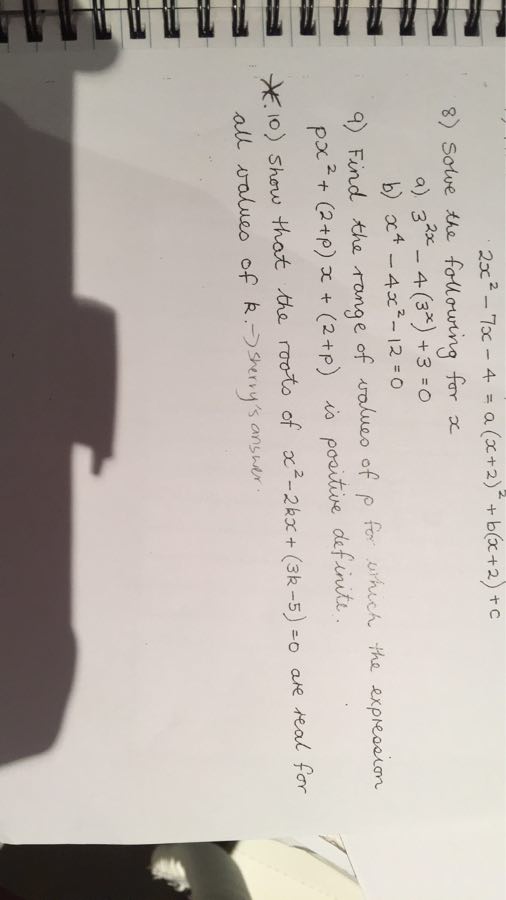 2x² - 7x - 4 = a(x+2)² + b(x+2) + c
8) Solve the following for x
a) 3²ˣ - 4(3ˣ) + 3 = 0
b) x⁴ - 4x² - 12 = 0
9) Find the range of values of p for which the expression
px² + (2+p)x + (2+p) is positive definite.
*. 10) Show that the roots of x² - 2kx + (3k-5) = 0 are real for
all values of k. -> Sherry's answer.